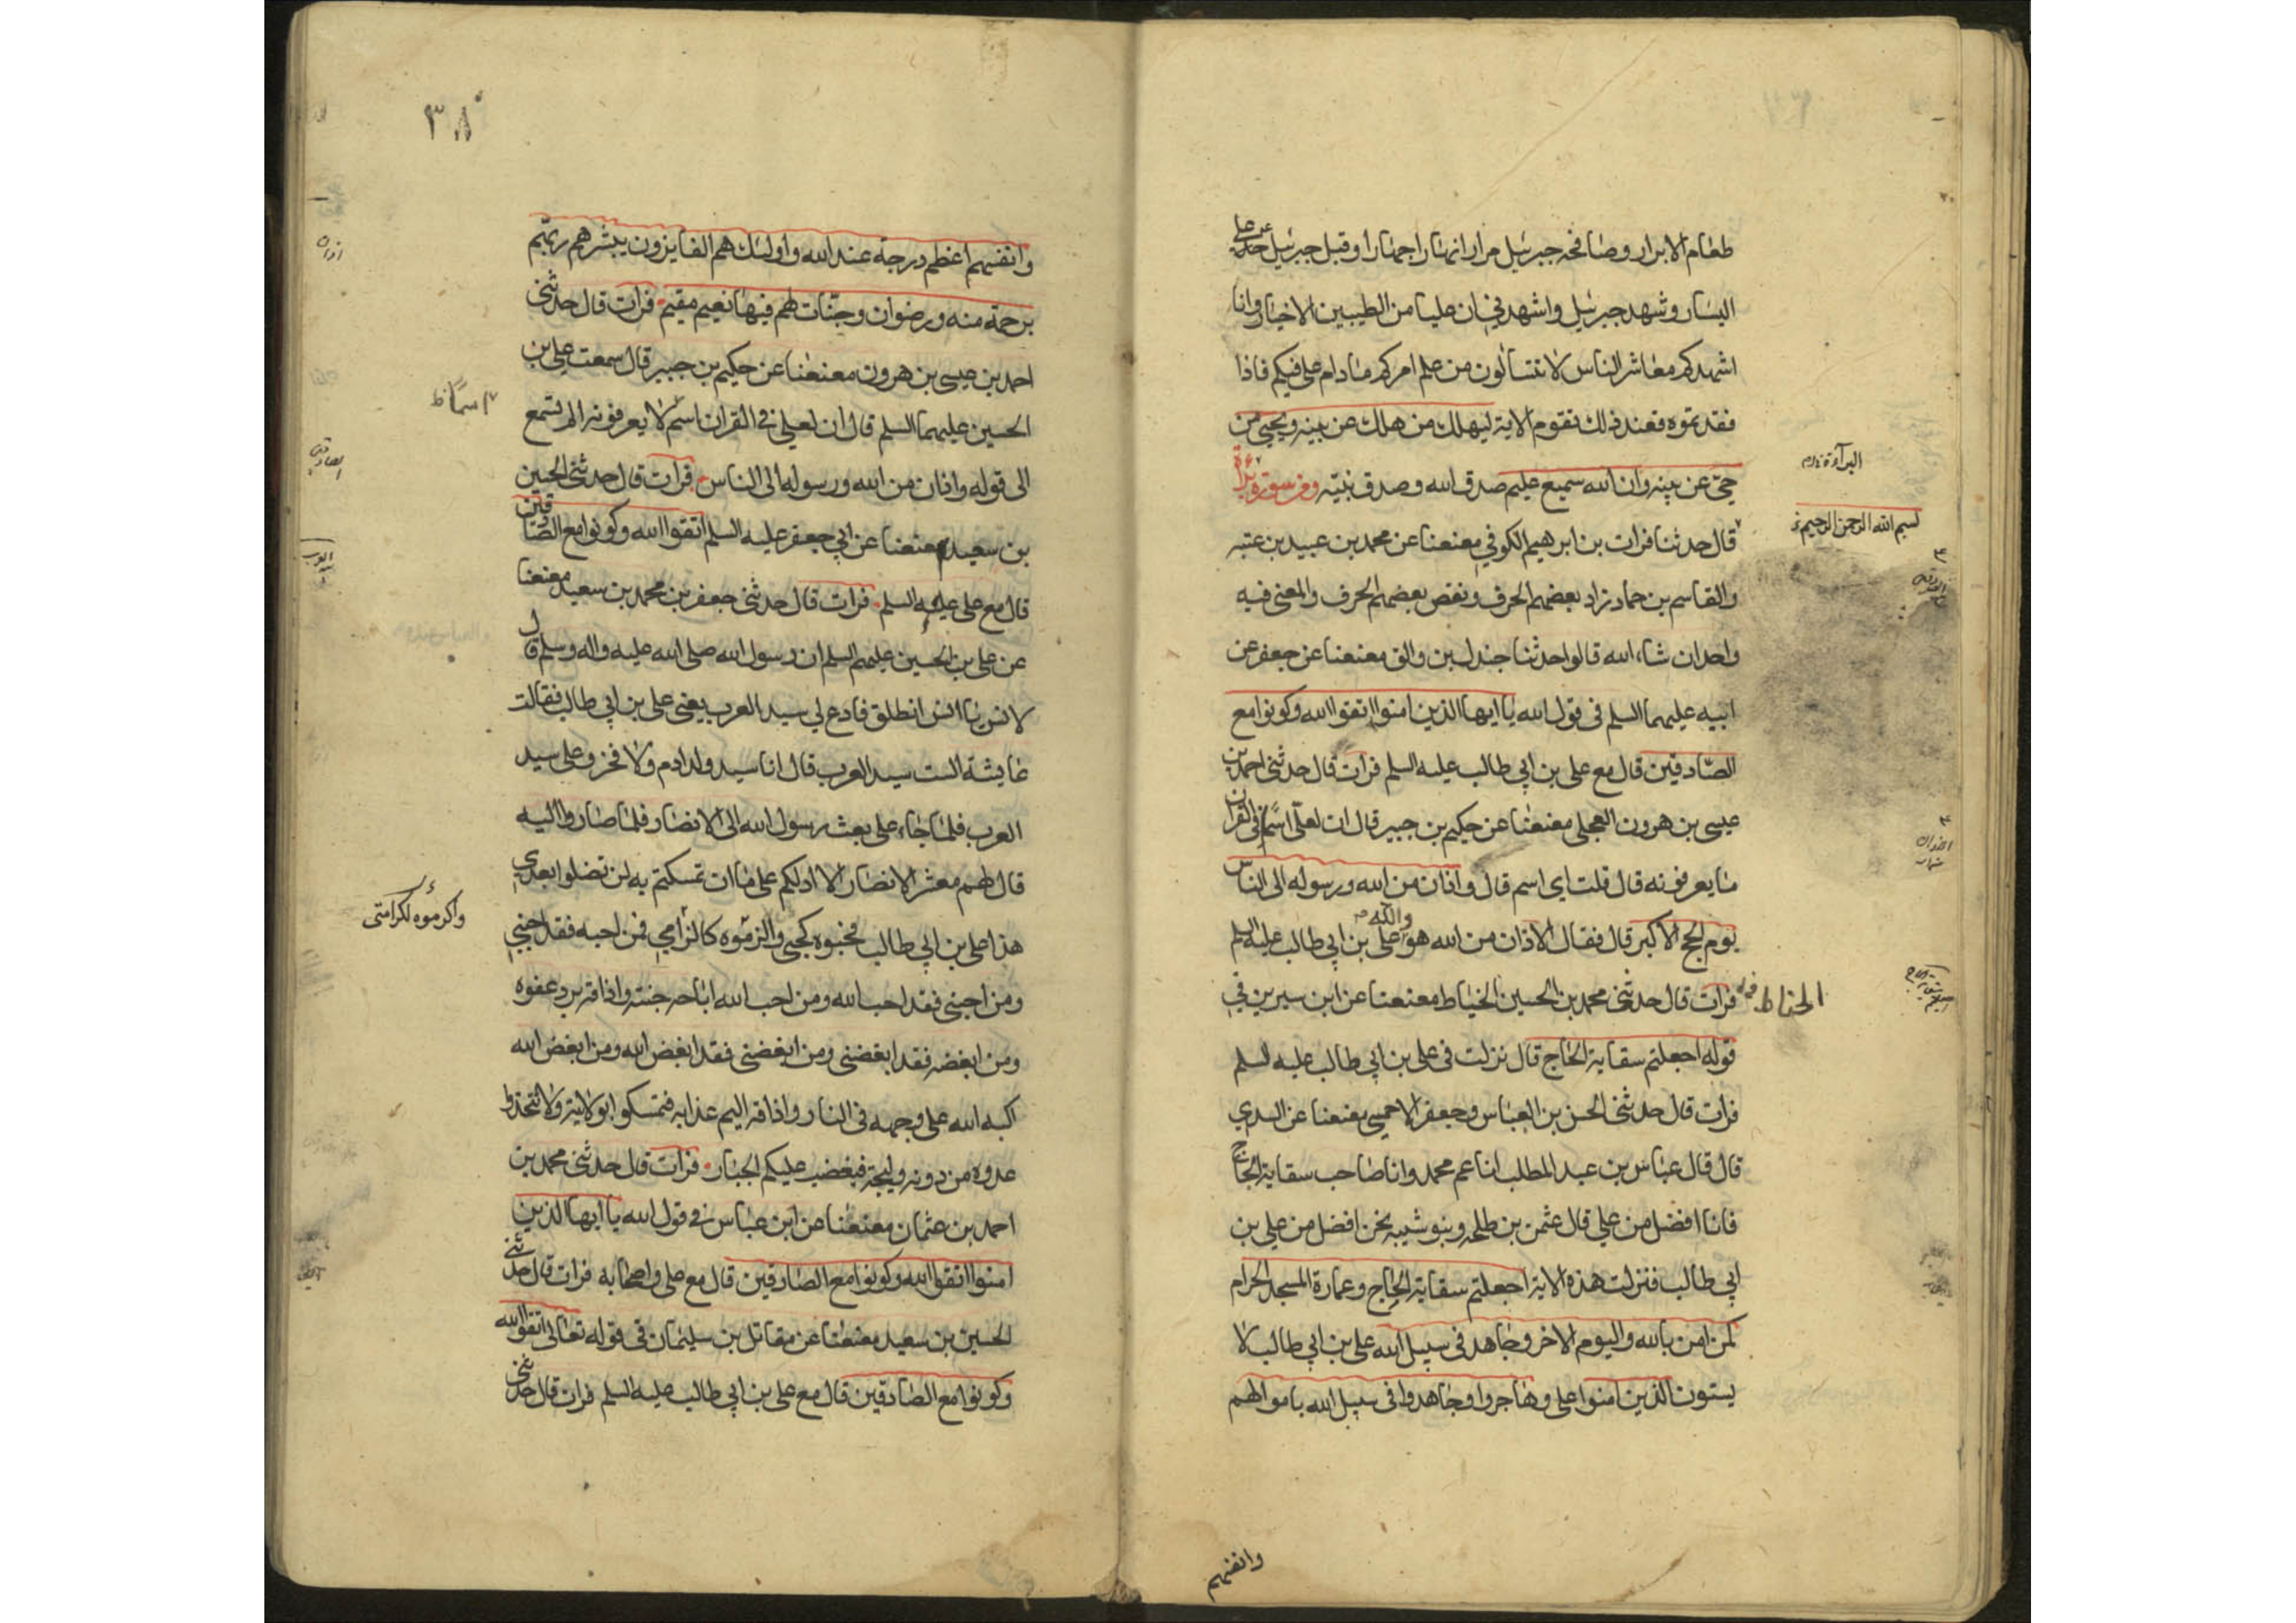 طعام الابرار وصافحه جبرئيل مرارا نهارا جهارا وقبل جبرئيل
اليسار وشهد جبرئيل واشهدني ان عليا من الطيبين الاخيار وانا
اشهدكم معاشر الناس لا تتسالون من علم امركم مادام علي فيكم فاذا
فقدتموه فعند ذلك تقوم الاية ليهلك من هلك عن بينه ويحيى من
حي عن بينه وان الله سميع عليم صدق الله وصدق نبيه ومن سورة براءة
البرآءة
بسم الله الرحمن الرحيم
قال حدثنا فرات بن ابرهيم الكوفي معنعنا عن محمد بن عبيد بن عتبه
والقاسم بن حماد زاد بعضهم الحرف ونقص بعضهم الحرف والمعنى فيه
واحد ان شاء الله قالوا حدثنا جندل بن والق معنعنا عن جعفر عن
ابيه عليهما السلم في قول الله يا ايها الذين امنوا اتقوا الله وكونوا مع
الصادقين قال مع علي بن ابي طالب عليه السلم فرات قال حدثني احمد بن
عيسى بن هرون العجلي معنعنا عن حكيم بن جبير قال ان لعلي اسما في القران
ما يعرفونه قال قلت اي اسم قال واذان من الله ورسوله الى الناس
يوم الحج الاكبر قال فقال الاذان من الله هو والله علي بن ابي طالب عليه السلم
الحناط
فرات قال حدثني محمد بن الحسين الخياط معنعنا عن ابن سيرين في
قوله اجعلتم سقاية الحاج قال نزلت في علي بن ابي طالب عليه السلم
فرات قال حدثني الحسن بن العباس وجعفر الاحمسي معنعنا عن السدي
قال قال عباس بن عبد المطلب انا عم محمد وانا صاحب سقاية الحاج
فانا افضل من علي قال عثمن بن طلحه وبنو شيبه نحن افضل من علي بن
ابي طالب فنزلت هذه الاية اجعلتم سقاية الحاج وعمارة المسجد الحرام
كمن امن بالله واليوم الاخر وجاهد في سبيل الله علي بن ابي طالب لا
يستون الذين امنوا علي وهاجروا وجاهدوا في سبيل الله باموالهم
وانفسهم
٣٨
وانفسهم اعظم درجة عند الله واولئك هم الفايزون يبشرهم ربهم
برحمة منه ورضوان وجنات لهم فيها نعيم مقيم فرات قال حدثني
احمد بن عيسى بن هرون معنعنا عن حكيم بن جبير قال سمعت علي بن
الحسين عليهما السلم قال ان لعلي في القران اسم لا يعرفونه الم تسمع
اسماً
الى قوله واذان من الله ورسوله الى الناس فرات قال حدثني الحسين
بن سعيد معنعنا عن ابي جعفر عليه السلم اتقوا الله وكونوا مع الصادقين
قال مع علي عليه السلم فرات قال حدثني جعفر بن محمد بن سعيد معنعنا
عن علي بن الحسين عليهم السلم ان رسول الله صلى الله عليه واله وسلم قال
لانس يا انس انطلق فادع لي سيد العرب يعني علي بن ابي طالب فقالت
عايشة الست سيد العرب قال انا سيد ولد ادم ولا فخر وعلي سيد
العرب فلما جاء علي بعث رسول الله الى الانصار فلما صاروا اليه
قال لهم معشر الانصار الا ادلكم على ما ان تمسكتم به لن تضلوا بعدي
هذا علي بن ابي طالب فحبوه كحبي والزموه كالزامي فمن احبه فقد احبني
واكرموه لكرامتي
ومن احبني فقد احب الله ومن احب الله اباحه جنته واذاقه برد عفوه
ومن ابغضه فقد ابغضني ومن ابغضني فقد ابغض الله ومن ابغض الله
اكبه الله على وجهه في النار واذاقه اليم عذابه فتمسكوا بولايته ولا تتخذوا
عدوه من دونه وليجة فيغضب عليكم الجبار فرات قال حدثني محمد بن
احمد بن عثمان معنعنا عن ابن عباس في قول الله يا ايها الذين
امنوا اتقوا الله وكونوا مع الصادقين قال مع علي واصحابه فرات قال حدثني
الحسين بن سعيد معنعنا عن مقاتل بن سليمان في قوله تعالى اتقوا الله
وكونوا مع الصادقين قال مع علي بن ابي طالب عليه السلم فرات قال حدثني